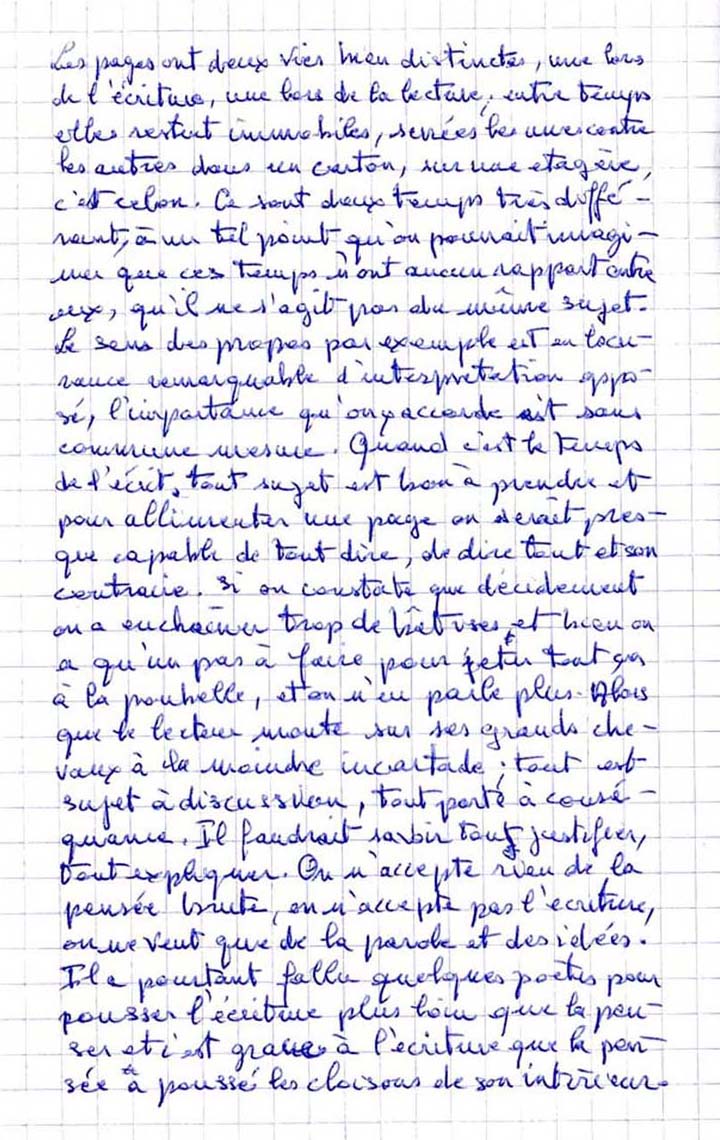 Les pages ont deux vies bien distinctes, une lors
de l'écriture, une lors de la lecture; entre temps
elles restent immobiles, serrées les unes contre
les autres dans un carton, sur une etagère,
c'est selon. Ce sont deux temps très diffé-
rent, à un tel point qu'on pourrait imagi-
ner que ces temps n'ont aucun rapport entre
eux, qu'il ne s'agit pas du même sujet.
Le sens des propos par exemple est en locu-
rance remarquable d'interprétation oppo-
sé, l'importance qu'on y accorde est sans
commune mesure. Quand c'est le temps
de l'écrit, tout sujet est bon à prendre et
pour allimenter une page on serait pres-
que capable de tout dire, de dire tout et son
contraire. Si on constate que décidement
on a enchaîner trop de bêtises, et bien on
a qu'un pas à faire pour jeter tout ça
à la poubelle, et on n'en parle plus. Alors
que le lecteur monte sur ses grands che-
vaux à la moindre incartade; tout est
sujet à discussion, tout porte à consé-
quance. Il faudrait savoir tout justifier,
tout expliquer. On n'accepte rien de la
pensée brute, on n'accepte pas l'ecriture,
on ne veut que de la parole et des idées.
Il a pourtant fallu quelques poètes pour
pousser l'écriture plus loin que la pen-
ser et c'est grace à l'écriture que la pen-
sée a poussé les cloisons de son intérieur.